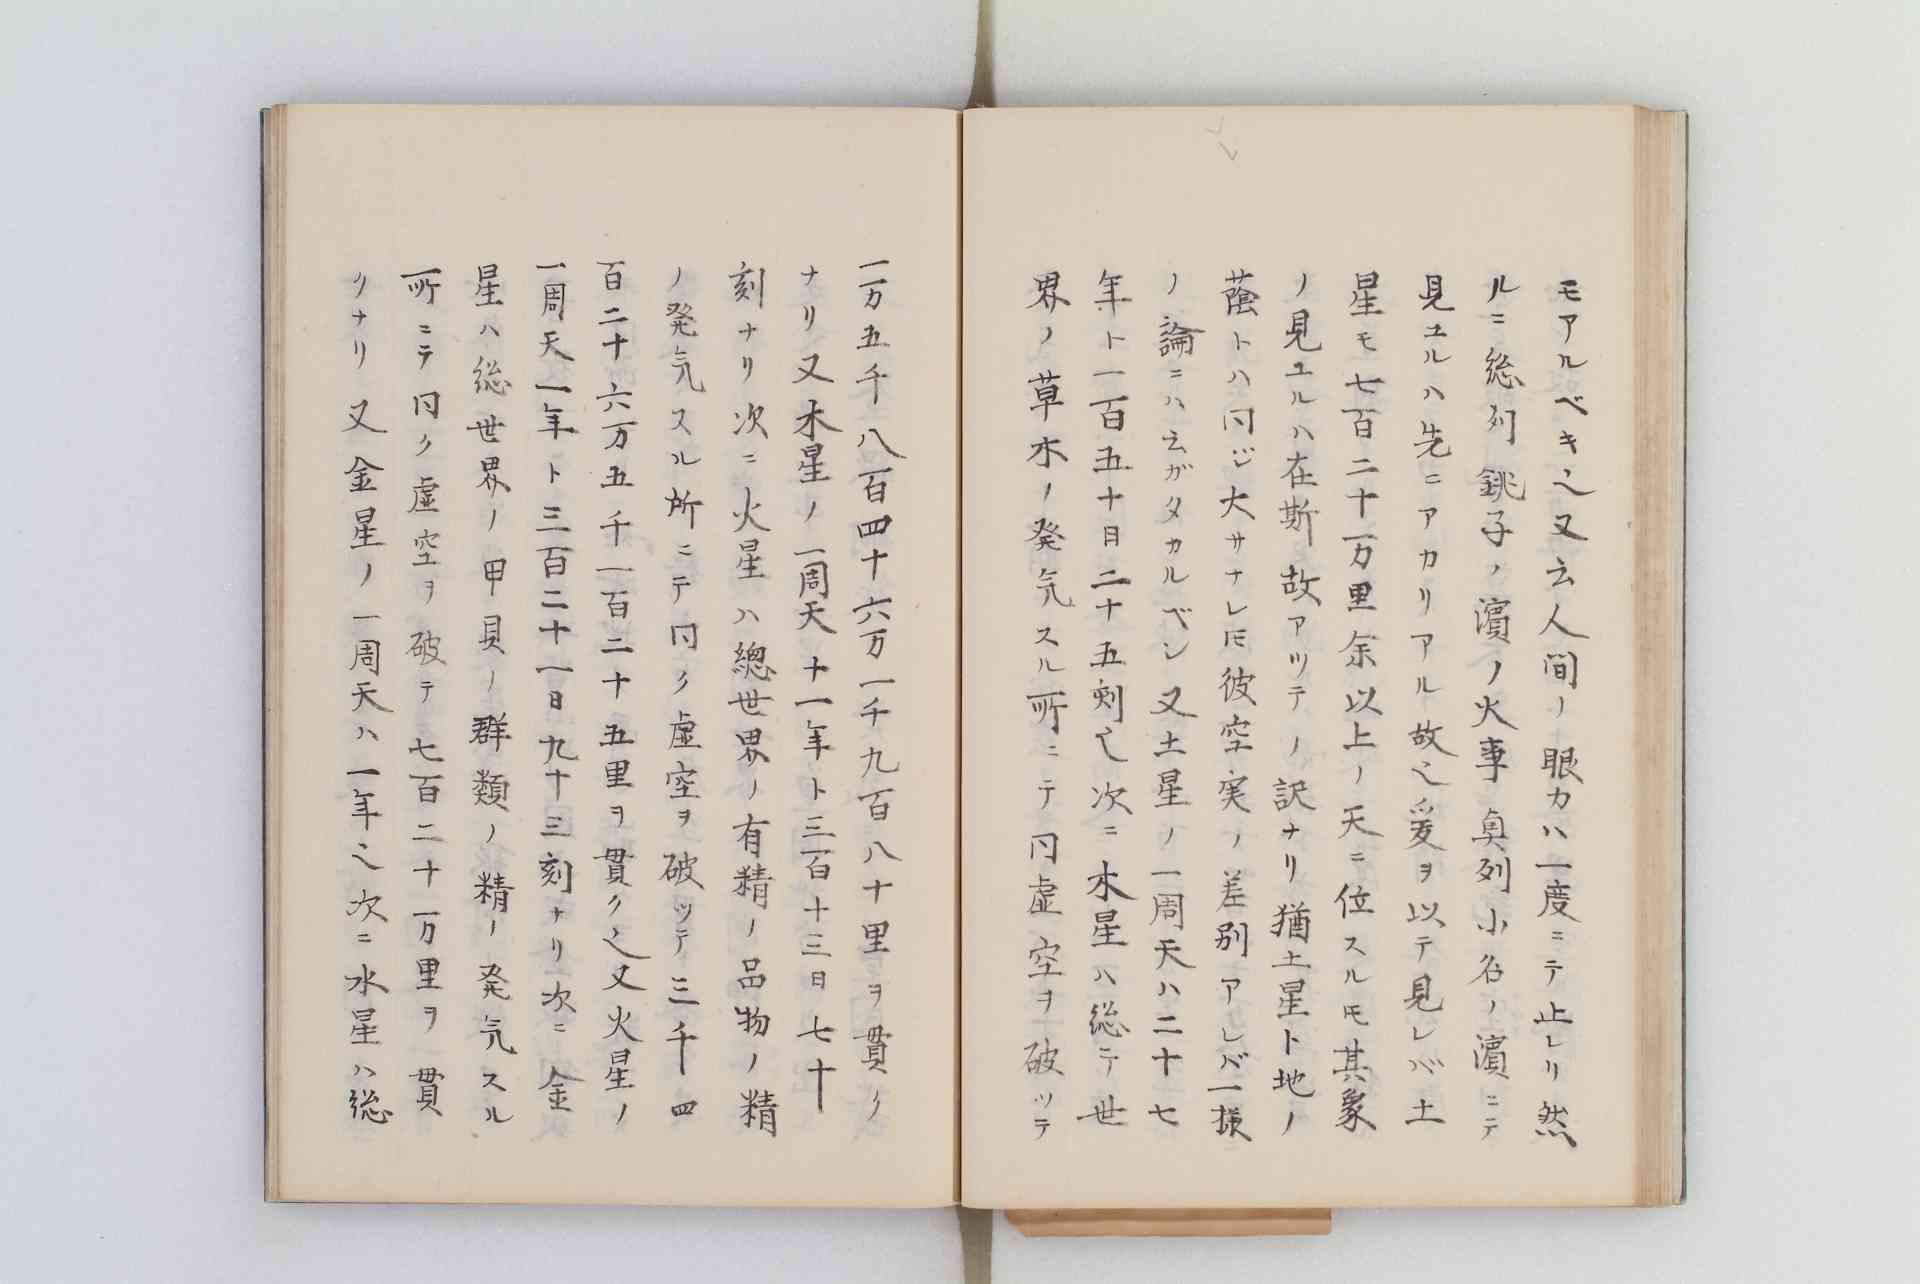 モアルベキ之又云人間ノ眼力ハ一度ニテ止レリ然
ルニ総列銚子ノ濱ノ火事眞列小名ノ濱ニテ
見ユルハ先ニアカリアル故之爰ヲ以テ見レバ土
星モ七百二十万里余以上ノ天ニ位スルモ其象
ノ見ユルハ在斯故アツテノ訳ナリ猶土星ト地ノ
蔭トハ同ジ大サナレ𪜈彼空実ノ差別アレバ一様
ノ論ニハ云ガタカルベシ又土星ノ一周天ハ二十七
年ト一百五十日二十五刻也次ニ木星ハ総テ世
界ノ草木ノ発気スル所ニテ同虚空ヲ破ッテ
一万五千八百四十六万一千九百八十里ヲ貫ク
ナリ又木星ノ一周天十一年ト三百十三日七十
刻ナリ次ニ火星ハ總世界ノ有精ノ品物ノ精
ノ発気スル所ニテ同ク虚空ヲ破ッテ三千四
百二十六万五千一百二十五里ヲ貫ク之又火星ノ
一周天一年ト三百二十一日九十三刻ナリ次ニ金
星ハ総世界ノ甲貝ノ群類ノ精ノ発気スル
所ニテ同ク虚空ヲ破テ七百二十万里ヲ貫
クナリ又金星ノ一周天ハ一年之次ニ水星ハ総